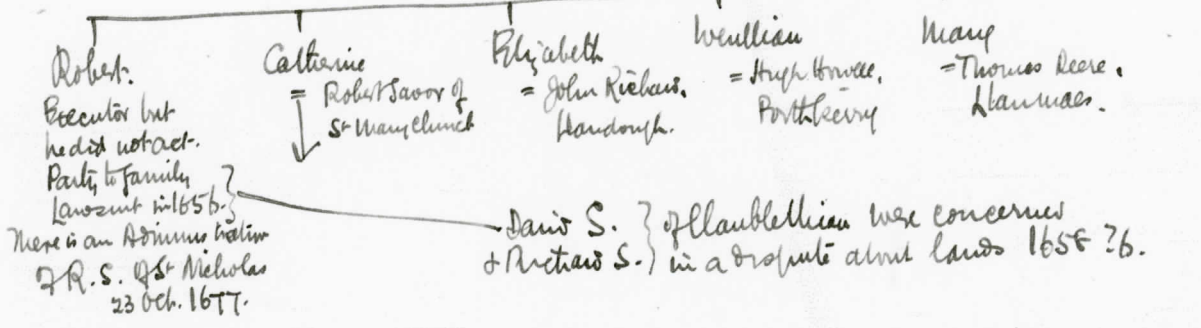 Robert.
Executor but
he did not act.
Party to family
Lawsuit in 1656.
There is an Administration
of R. S. of St Nicholas
23 Oct. 1677.
Catherine
= Robert Savor of
St Mary Church
Elizabeth
= John Richard.
Llandough.
Wenllian
= Hugh Howell.
Porthkerry
Mary
= Thomas Reere.
Llanmaes.
David S. } of Llanblethian were concerned
& Richard S. } in a dispute about lands 1658 ?6.